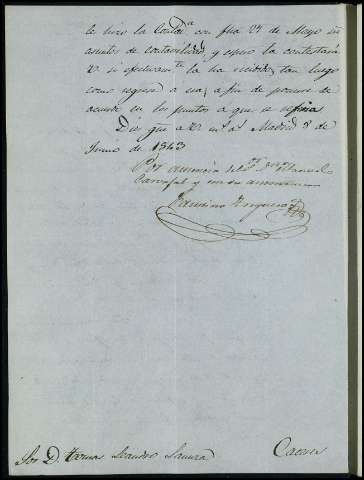 le hizo la Contad.ª con fha 27 de Mayo sre
asuntos de contavilidad, y espero la contestacion
V. si efectivam.te la ha recibido, tan luego
como regrese a esa, a fin de ponerse de
acuerdo en los puntos a que se refiera
Dios gue a V. m.s a.s Madrid 3 de
Junio de 1843
P.r ausencia del S.r D.n Manuel
Carvajal y con su
Faustino
Sor D. Tomas Leandro Caceres